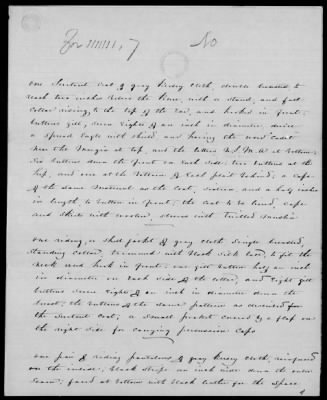 No
One Surtout Coat of gray Kersey cloth, double breasted to
reach two inches below the Knee, with a stand, and fall
Collar rising, to the top of the ear, and hooked in front;
buttons gilt, seven eighths of an inch in diameter, device
a spread Eagle with shield, and having the word Cadet
near the margin at top, and the letters U.S.M.A at bottom.
Six buttons down the front on each side, two buttons at the
hip, and one at the bottom of each plait behind, a cape
of the same material as the Coat, and a half inches
in length, to button in front; the Coat to be lined, cape
and Skirts with woolen, sleeves with twilled muslin
One riding, or Shell jacket of gray cloth Single breasted,
Standing Collar, trimmed with black silk lace, to fit the
neck and hook in front; one gilt button half an inch
in diameter on each side of the collar, and eight gilt
buttons seven eighths of an inch in diameter down the
breast; the buttons of the same pattern as described for
the Surtout Coat; a small pocket covered by a flap on
the right side for carrying percussion Caps
One pair of riding pantaloons of gray Kersey cloth, reinforced
on the inside; black stripe an inch wide down the outer
seam; faced at bottom with black leather for the space